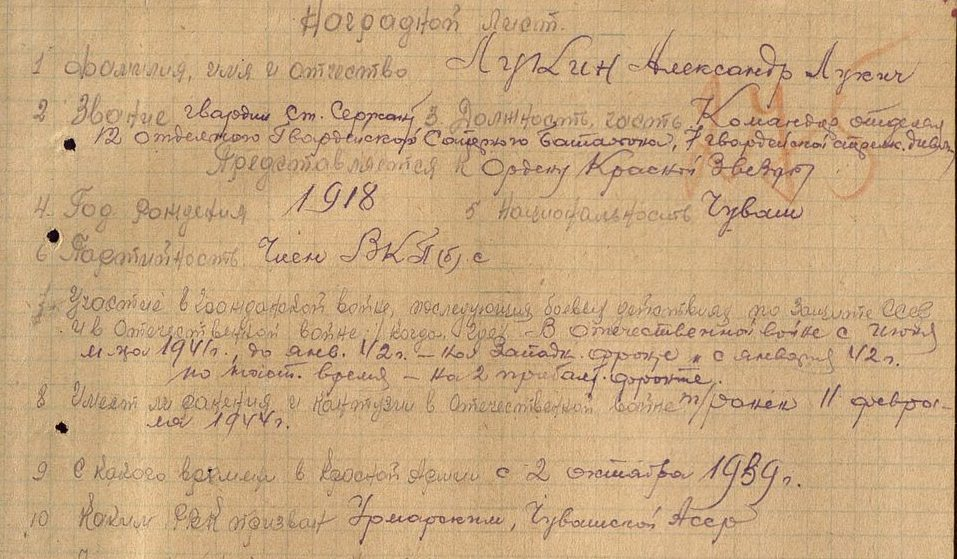 Наградной лист.
1 Фамилия, имя и отчество Лукин Александр Лукич
2 Звание гвардии ст. сержант 3. Должность, часть Командир отделен
12 отдельного Гвардейского Саперного батальона, 7 гвардейской стрелк. дивизии
Представляется к Ордену Красной Звезды
4. Год рождения 1918 5 Национальность Чуваш
6 Партийность Член ВКП(б) с
7 Участие в гражданской войне, последующих боевых действиях по защите СССР
и в отечественной войне /когда, где/ - В отечественной войне с июня
м-ца 1941г., до янв. 42г. - на Западн. фронте, с января 42г.
по наст. время - на 2 прибалт. фронте.
8 Имеет ли ранения и контузии в отечественной войне т/ранен 11 февра-
ля 1944г.
9 С какого времени в Красной Армии с 2 октября 1939г.
10 Каким РВК призван Урмарским, Чувашской Асср